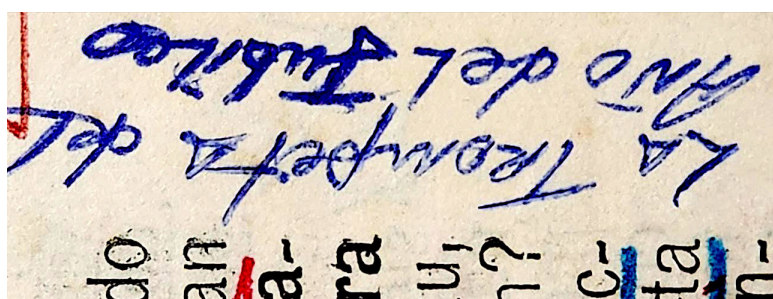 La Trompeta del
Año del Jubileo
do
an
a-
ra
u,
n?
c-
ta
n-